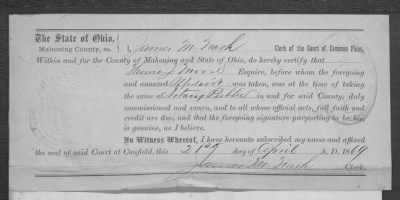 The State of Ohio,
Mahoning County, ss. } I, James M. Nash Clerk of the Court of Common Pleas,
Within and for the County of Mahoning and State of Ohio, do hereby certify that
Esquire, before whom the foregoing
and annexed Affidavit was taken, was at the time of taking
the same a Notary Public in and for said County, duly
commissioned and sworn, and to all whose official acts, full faith and
credit are due, and that the foregoing signature purporting to be his
is genuine, as I believe.
In Witness Whereof, I have hereunto subscribed my name and affixed
the seal of said Court at Canfield, this day of April A. D. 1864
James M. Nash Clerk.